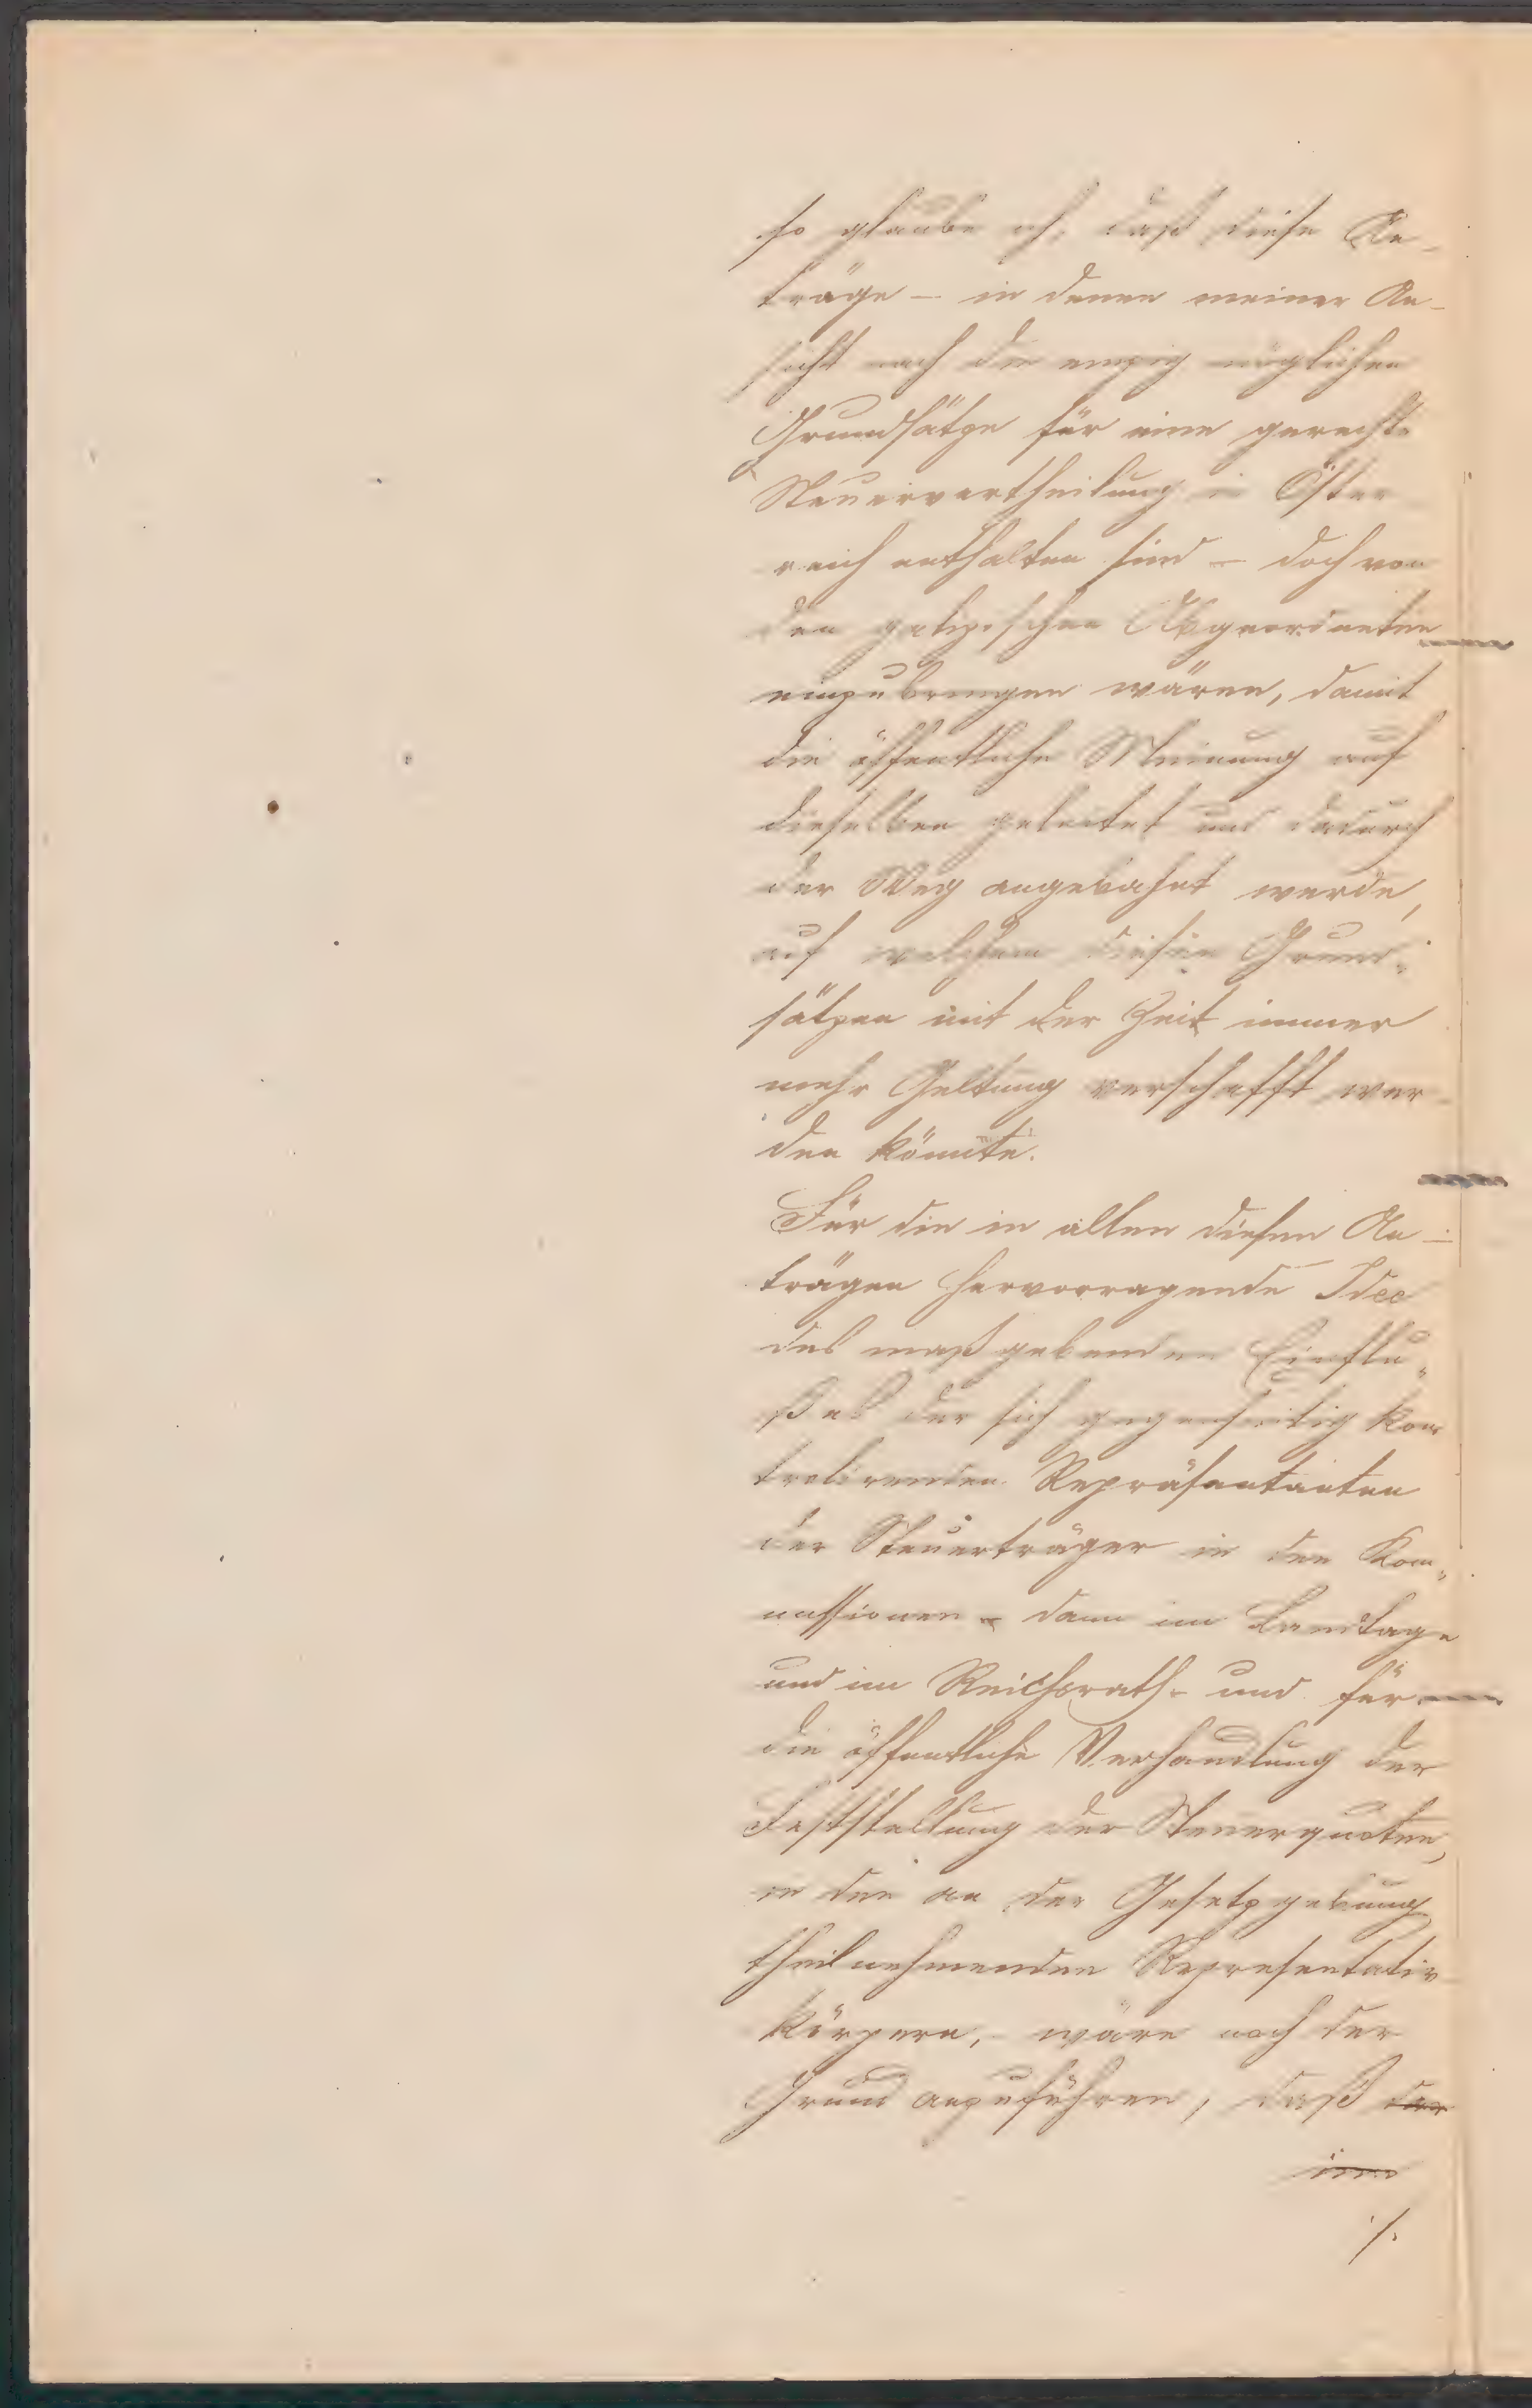 so glaube ich, daß diese An-
träge – in denen meiner An-
sicht nach die einzig möglichen
Grundsätze für eine gerechte
Steuervertheilung in Öster
reich enthalten sind – doch von
den galizischen Abgeordneten
einzubringen wären, damit
die öffentliche Meinung auf
dieselben geleitet und dadurch
der Weg angebahnt werde,
auf welchem diesen Grund-
sätzen mit der Zeit immer
mehr Geltung verschafft wer-
den könnte.
Für die in allen diesen An-
trägen hervorragende Idee
des maßgebenden Einflu-
ßes der sich gegenseitig kon
trolirenden Repräsentanten
der Steuerträger in den Kom-
missionen – dann im Landtage
und im Reichsrath – und für
die öffentliche Verhandlung der
Feststellung der Steuerquoten,
in den an der Gesetzgebung
theilnehmenden Representativ
körpern, – wäre noch der
Grund anzuführen, daß der
im
./.